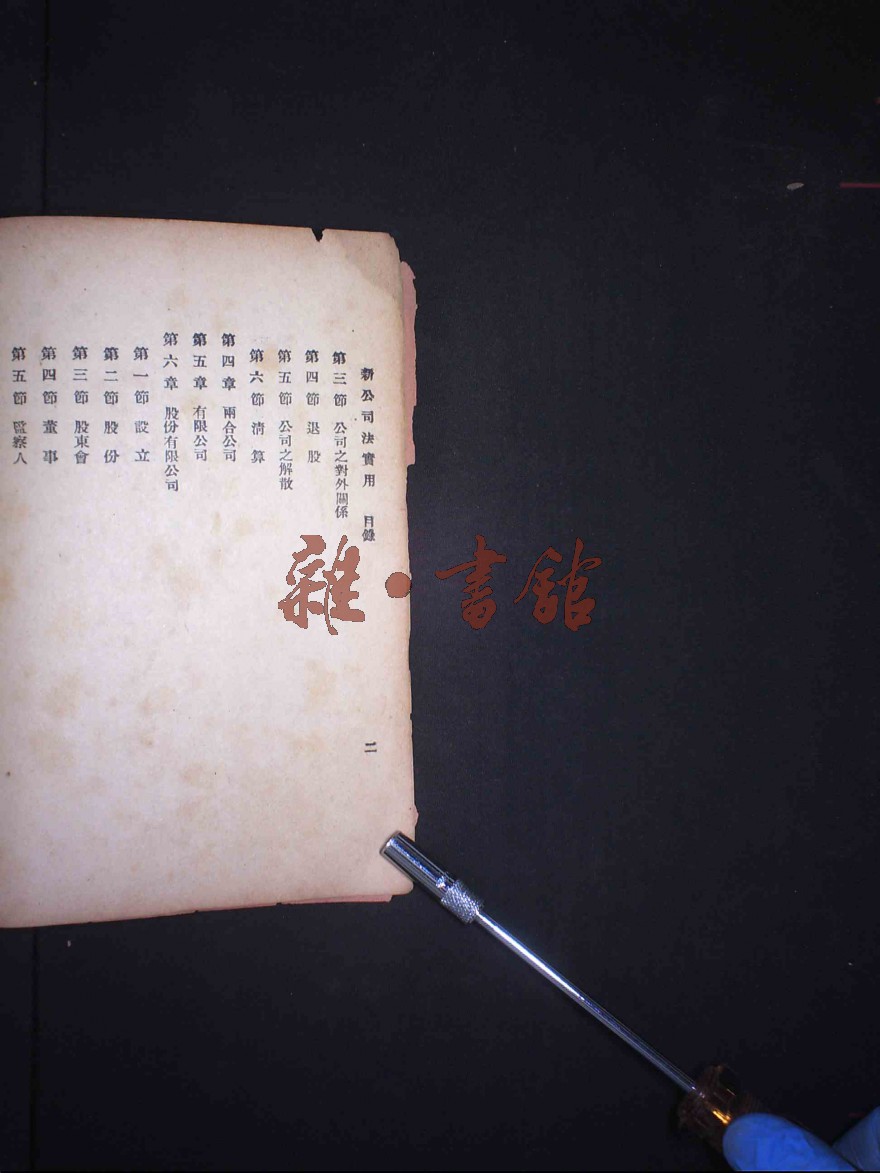 新公司法實用　目錄
二
第三節　公司之對外關係
第四節　退股
第五節　公司之解散
第六節　清算
第四章　兩合公司
第五章　有限公司
第六章　股份有限公司
第一節　設立
第二節　股份
第三節　股東會
第四節　董事
第五節　監察人
雜·書館